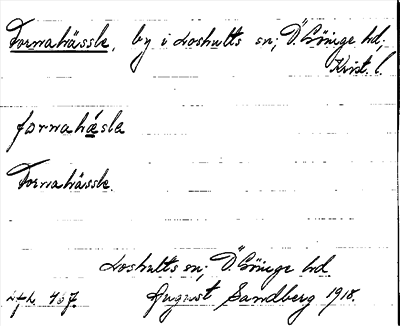 Tornahässle, by i Loshults sn; Ö. Göinge hd,
Krist. l.
tornahä́sla
Tornahässle.
Loshults sn; Ö. Göinge hd
August Sandberg 1918.